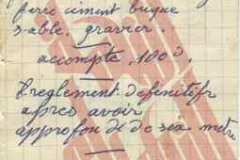 fere ciment buque
sable, gravier.
accompte, 100
Reglement definitif
apres avoir
approfon de de six metre